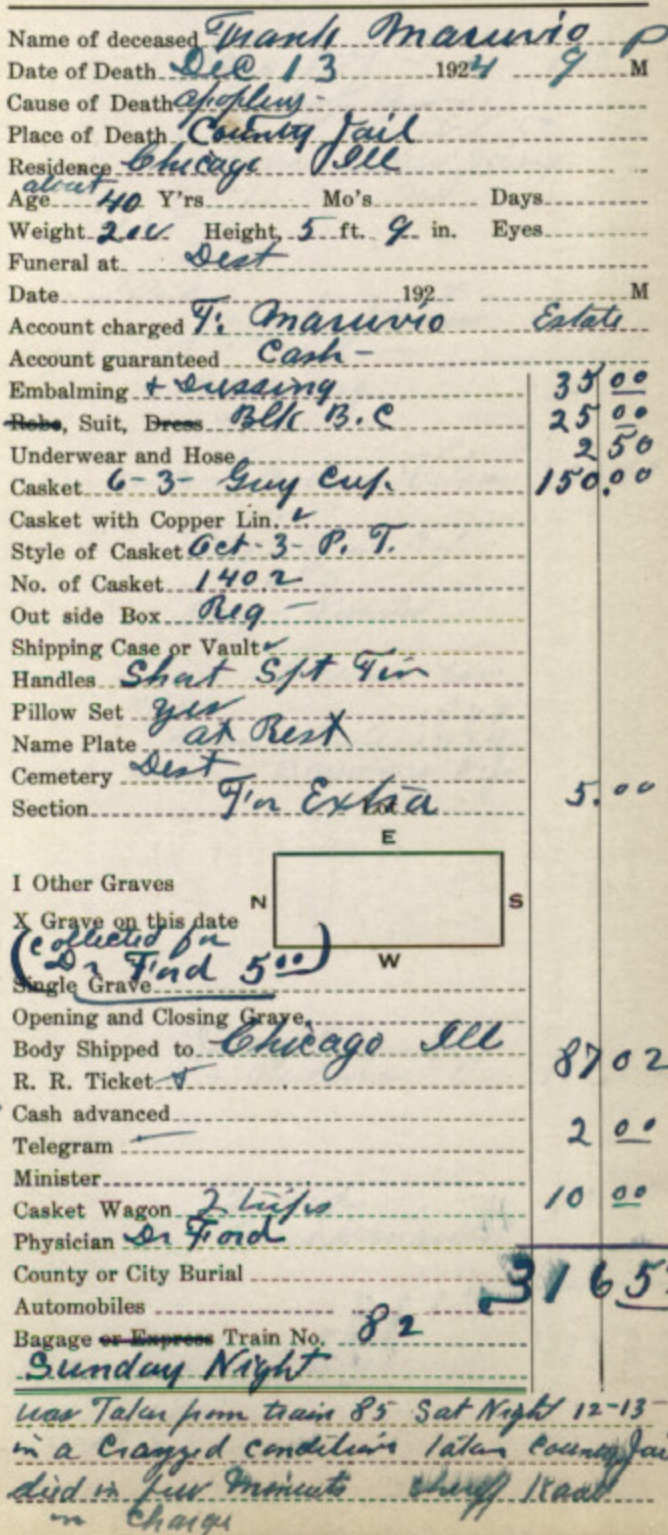 Name of deceased Frank Maruvio P
Date of Death Dec 13 1924 9 M
Cause of Death apoplexy -
Place of Death County Jail
Residence Chicago Ill
about
Age 40 Y'rs. Mo's Days
Weight 200 Height, 5 ft. 9 in. Eyes
Funeral at Dest
Date 192 M
Account charged F. Maruvio Estate
Account guaranteed Cash -
Embalming + Dressing 35 00
Robe, Suit, Dress Blk B.C 25 00
Underwear and Hose 2 50
Casket 6-3- Guy Cup. 150.00
Casket with Copper Lin. ✓
Style of Casket Oct-3-P.T.
No. of Casket 1402
Out side Box Reg -
Shipping Case or Vault ✓
Handles Short Tin
Pillow Set yes
Name Plate at Rest
Cemetery Dest
Section For Extra 5.00
E
I Other Graves
N S
X Grave on this date
W
(Collected for
Dr Ford 5 00)
Single Grave
Opening and Closing Grave
Body Shipped to Chicago Ill 87 02
R. R. Ticket
Cash advanced
Telegram 2 00
Minister
Casket Wagon 2 trips 10 00
Physician Dr Ford
County or City Burial 316 52
Automobiles
Bagage or Express Train No. 82
Sunday Night
was Taken from train 85 Sat Night 12-13
in a Crazzed condition taken County Jail
died in few Minuts Sheriff
in Charge